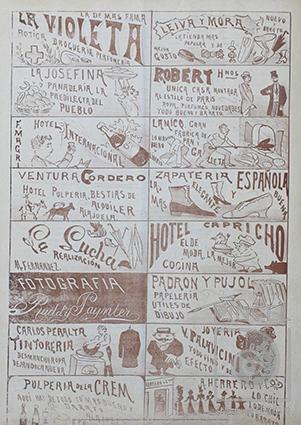 LA DE MAS FAMA
LA VIOLETA
BOTICA DROGUERIA PERFUMERIA
LEIVA Y MORA
NUEVO
LA TIENDA MAS
POPULAR Y DE
GUSTO
LA JOSEFINA
PANADERIA LA
PREDILECTA DEL
PUEBLO
ROBERT HNOS
UNICA CASA MONTADA
AL ESTILO DE PARIS
ROPA, PERFUMES NOVEDADES
TODO BUENO Y BARATO
F. MAGRI
HOTEL
INTERNACIONAL
LA UNICA GRAN
FABRICA DE
VENTURA CORDERO
HOTEL PULPERIA, BESTIAS DE
ALQUILER
ALAJUELA
ZAPATERIA ESPAÑOLA
LA
MAS
ELEGANTE
Y
BUENA
La Lucha
REALIZACIÓN
M. FERNANDEZ.
HOTEL CAPRICHO
EL DE
MODA, LA MEJOR
COCINA
FOTOGRAFIA
Rudd y Paynter
PADRON Y PUJOL
PAPELERIA
UTILES DE
DIBUJO
CARLOS PERALTA
TINTORERIA
DESMANCHA ROPA
DEJANDOLA NUEVA
JOYERIA
V. PALAVICINI
TODO FINO Y DE
EFECTO
PULPERIA DE LA CREM
A. HERRERO Y CO
LO CHIC
LO DE MODA
LO BARATO